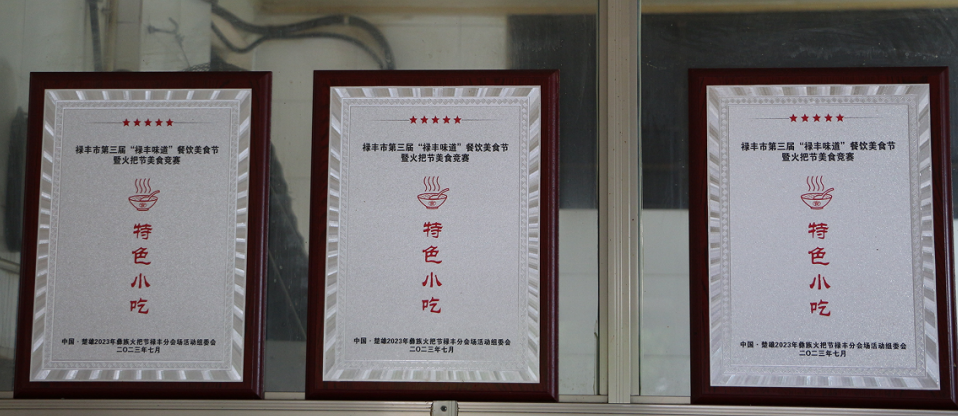 禄丰市第三届“禄丰味道”餐饮美食节
暨火把节美食竞赛
特
色
小
吃
中国·楚雄2023年彝族火把节禄丰分会场活动组委会
二〇二三年七月
禄丰市第三届“禄丰味道”餐饮美食节
暨火把节美食竞赛
特
色
小
吃
中国·楚雄2023年彝族火把节禄丰分会场活动组委会
二〇二三年七月
禄丰市第三届“禄丰味道”餐饮美食节
暨火把节美食竞赛
特
色
小
吃
中国·楚雄2023年彝族火把节禄丰分会场活动组委会
二〇二三年七月